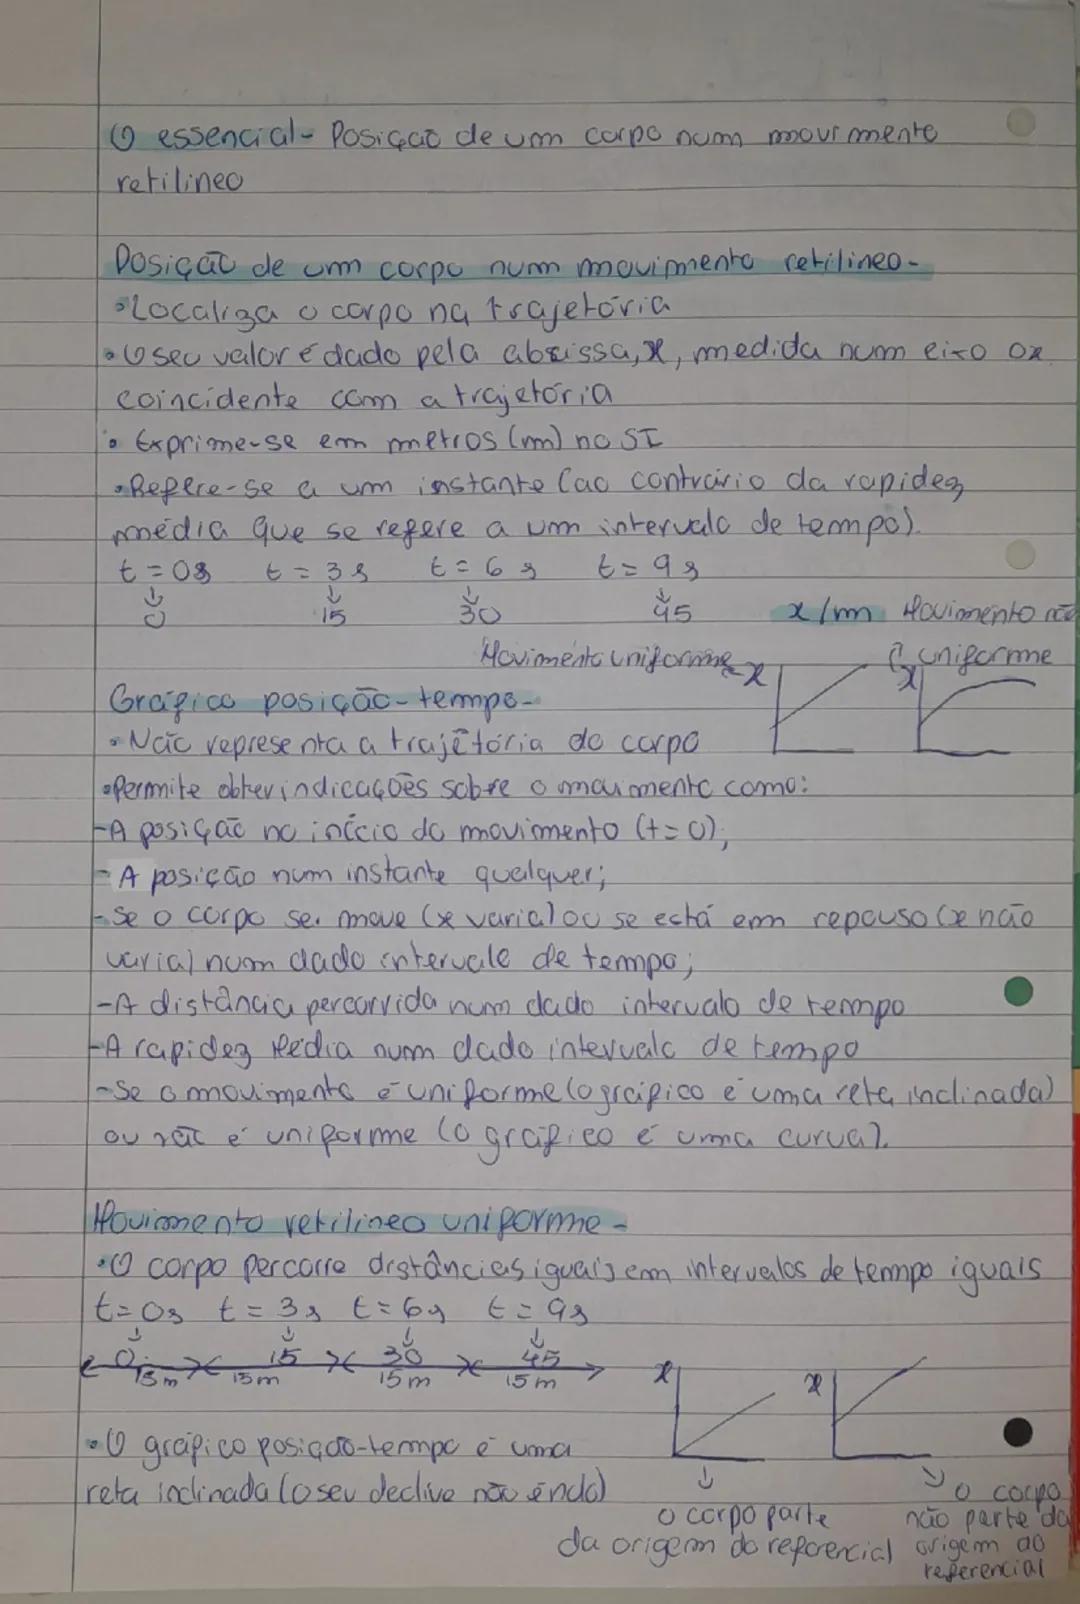 O essencial- Posição de um corpo num movimento
retilineo
Posição de um corpo num movimento retilineo-
•Localiza o corpo na trajetória
•O seu valor é dado pela absissa, x, medida num eixo Ox
coincidente com a trajetória
• Exprime-se em metros (m) no SI
•Refere-se a um instante (ao contrário da rapidez
média que se refere a um intervalo de tempo).
t = 0s t = 3s t = 6s t = 9s
↓ ↓ ↓ ↓
0 15 30 45 x/m Movimento não
Movimento uniforme x ↑ x uniforme
Gráfico posição-tempo-
•Não representa a trajétória do corpo
•Permite obter indicações sobre o movimento como:
-A posição no início do movimento (t=0);
-A posição num instante qualquer;
-Se o corpo se move (x varia) ou se está em repouso (x não
varia) num dado intervalo de tempo;
-A distância percorrida num dado intervalo de tempo
-A rapidez Média num dado intervalo de tempo
-Se o movimento é uniforme (o gráfico é uma reta inclinada)
ou não é uniforme (o gráfico é uma curva).
Movimento retilineo uniforme-
•O corpo percorre distâncias iguais em intervalos de tempo iguais
t=0s t=3s t=6s t=9s
↓ ↓ ↓ ↓
0 15 30 45
15m 15m 15m 15m
x x
•O gráfico posição-tempo é uma
reta inclinada (o seu declive não é nulo)
↓ ↓
o corpo parte
da origem do referencial
o corpo
não parte da
origem do
referencial